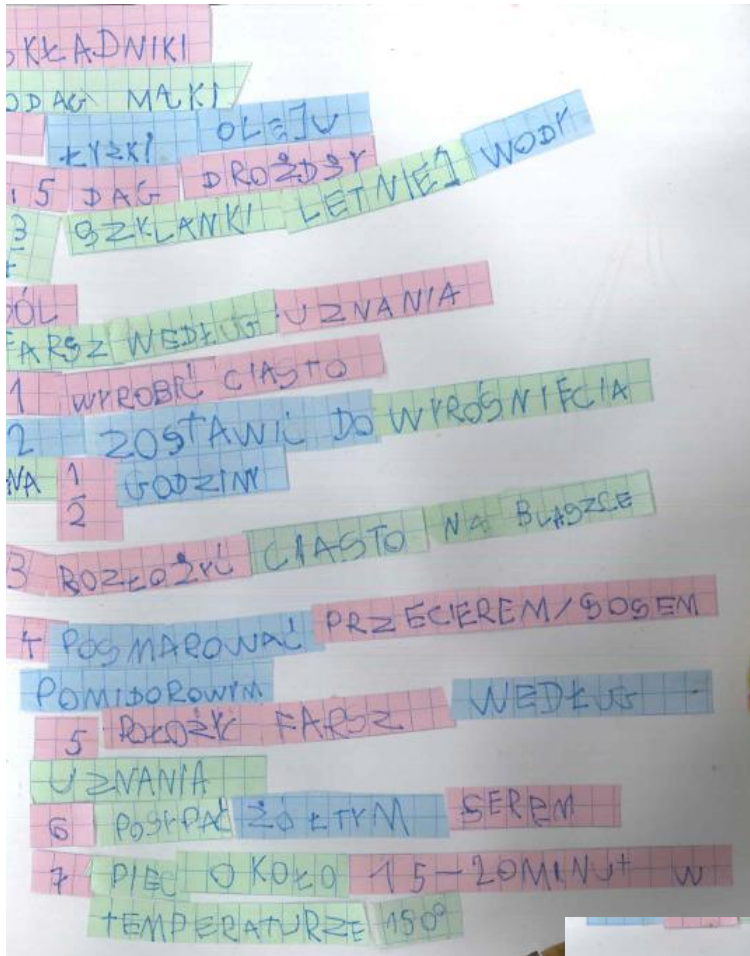 SKŁADNIKI
0 DAG MĄKI
ŁYŻKI OLEJU
15 DAG DROŻDŻY
3 SZKLANKI LETNIEJ WODY
4
ÓL
FARSZ WEDŁUG UZNANIA
1 WYROBIĆ CIASTO
2 ZOSTAWIĆ DO WYROŚNIĘCIA
NA 1 GODZINY
2
3 ROZŁOŻYĆ CIASTO NA BLASZCE
4 POSMAROWAĆ PRZECIEREM/SOSEM
POMIDOROWYM
5 POŁOŻYĆ FARSZ WEDŁUG
UZNANIA
6 POSYPAĆ ŻÓŁTYM SEREM
7 PIEC OKOŁO 15-20MINUT W
TEMPERATURZE 190°